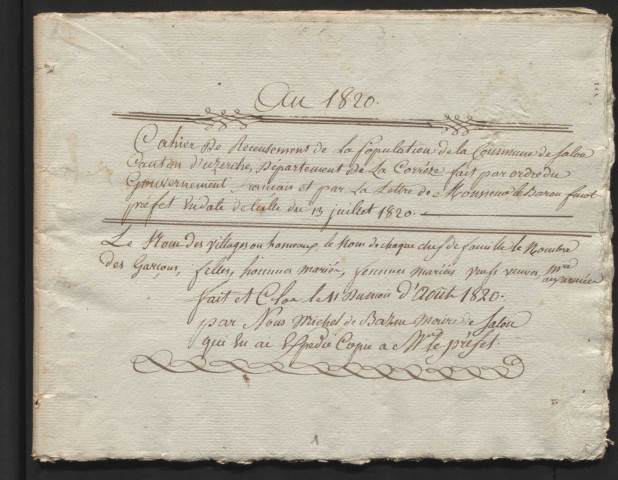 An 1820.
Cahier de Recensement de la Population de la Commune de Salon
Canton d'uzerche, Département de La Corréze fait par ordre du
Gouvernement francais et par La Lettre de Monsieur le Baron finot
prefet En date de tulle du 13 juillet 1820.
Le Nom des villages ou hameaux le Nom de chaque chef de famille le Nombre
des Garçons, filles, hommes mariés, femmes mariés veufs veuves, mres
aux armées
fait et Clos le 11 du mois d'Août 1820.
par Nous Michel de Maire de Salon
qui En ai Expedié Copie a Mr le préfet
1